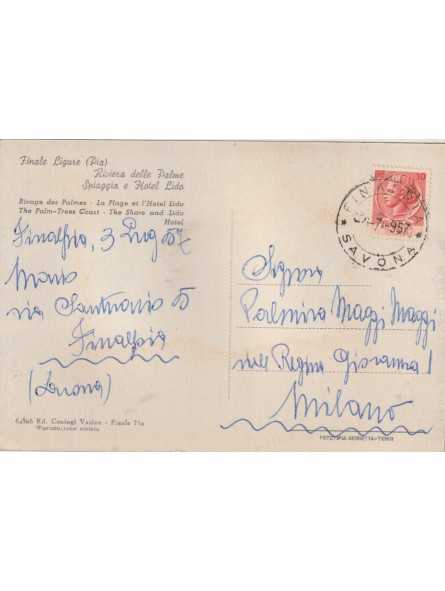 Finale Ligure (Pia)
Riviera delle Palme
Spiaggia e Hotel Lido
Rivage des Palmes - La Plage et l'Hotel Lido
The Palm-Trees Coast - The Shore and Lido
Hotel
Finalpia, 3 Lug 57
Mario
via Santuario 5
Finalpia
(Savona)
Signora
Palmira Maggi Maggi
viale Regina Giovanna 1
Milano
Ed. Coniugi Vadon - Finale Pia
Riproduzione vietata
SAVONA